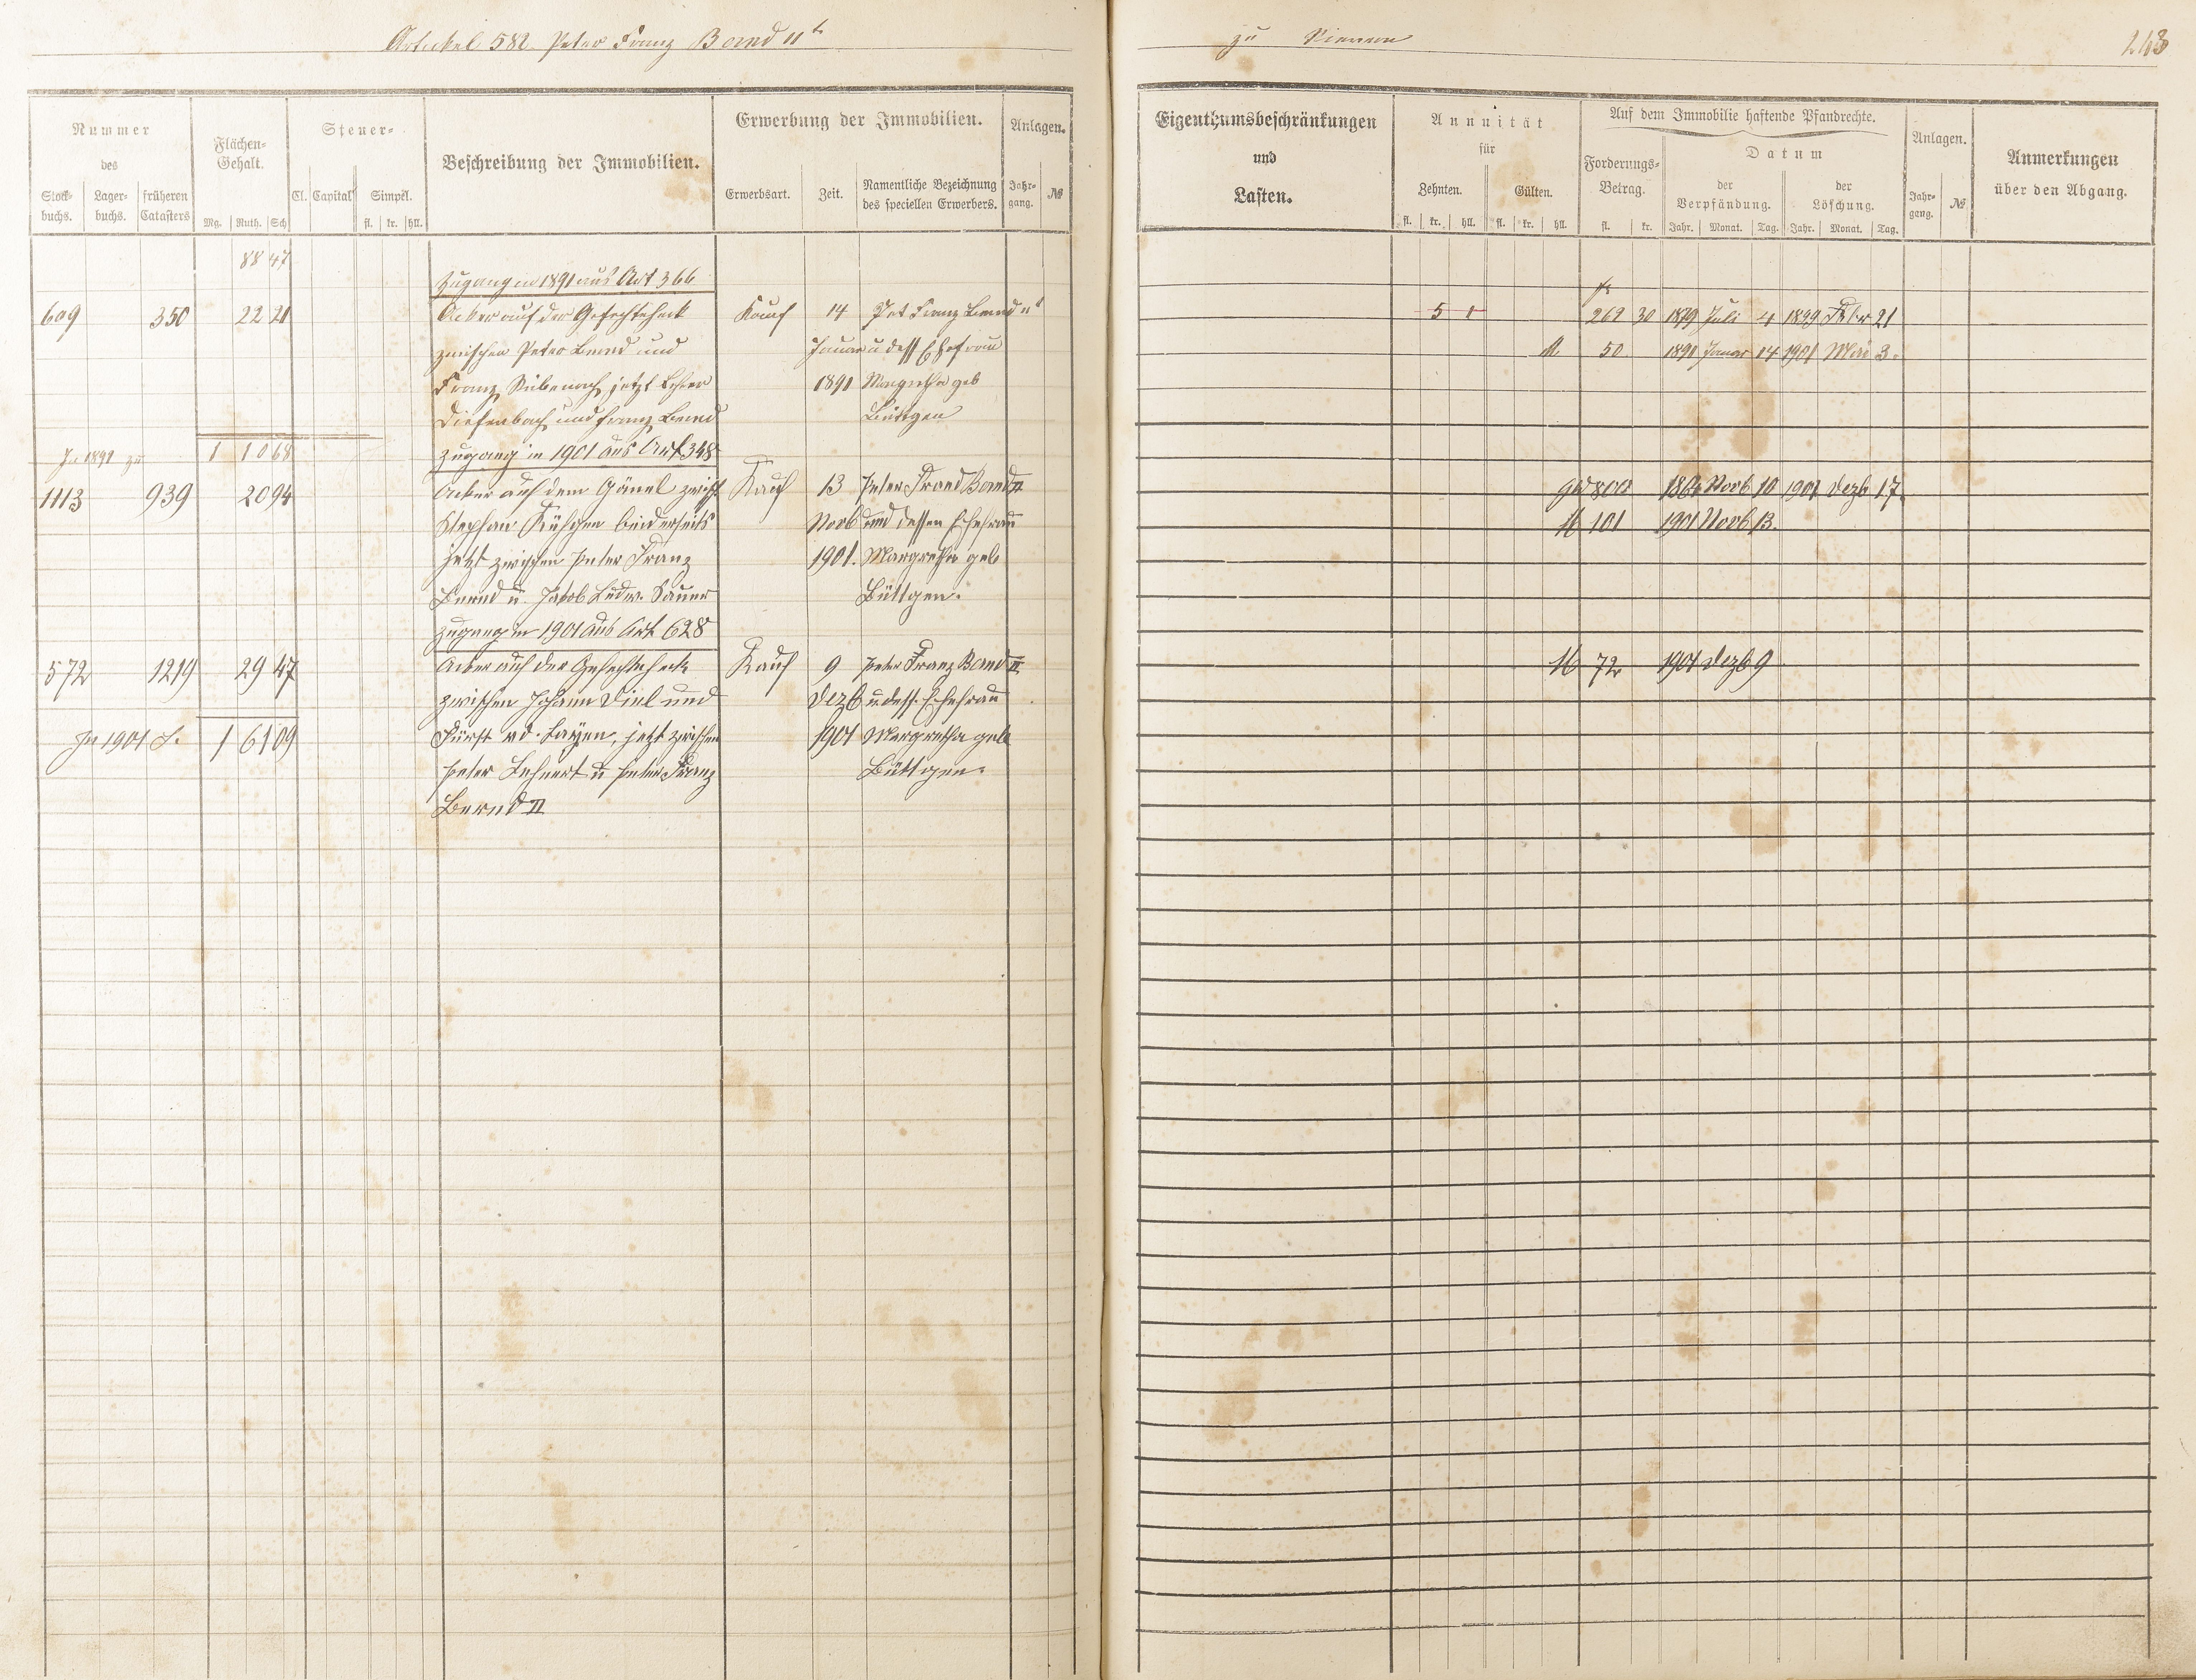 Artikel 582 Peter Franz Bernd IIt
zu
243
Nummer
des
Stock-
buchs.
Lager-
buchs.
früheren
Catasters
Flächen-
Gehalt.
Mg. Ruth. Sch
Steuer-
Cl. Capital Simpel.
fl. kr. hll.
Beschreibung der Immobilien.
Erwerbung der Immobilien.
Erwerbsart. Zeit.
Namentliche Bezeichnung
des speciellen Erwerbers.
Anlagen.
Jahr-
gang.
№
Eigenthumsbeschränkungen
und
Lasten.
Annuität
für
Zehnten. Gülten.
fl. kr. hll. fl. kr. hll.
Auf dem Immobilie haftende Pfandrechte.
Forderungs-
Betrag.
fl. kr.
Datum
der
Verpfändung.
der
Löschung.
Jahr. Monat. Tag. Jahr. Monat. Tag.
Anlagen.
Jahr-
gang.
№
Anmerkungen
über den Abgang.
88 47
Zugang in 1891 aus Art 366
609 350 22 21 Acker auf der Kauf 14 Pet Franz Bernd IIt 5 1 262 30 1879 Juli 4 1899 Febr 21
zwischen Peter Bernd und Januar u dess Ehefrau M. 50 1891 Januar 14 1901 Mai 3.
Franz jetzt Lehrer 1891 Margretha geb
Diefenbach und Franz Bernd Büttgen
In 1891 zu 1 10 68 Zugang in 1901 aus Art 348
1113 939 20 94 Acker auf dem zwisch Kauf 13 Peter Franz Bernd II 800 1864 Novb 10 1901 Dezb 17.
Stephan beiderseits Novb und dessen Ehefrau M 101 1901 Novb 13.
jetzt zwischen Peter Franz 1901. Margretha geb
Bernd u. Jakob Ludw. Sauer Büttgen.
Zugang in 1901 aus Art 628
572 1219 29 47 Acker auf der Kauf 9 Peter Franz Bernd II M 72 1901 Dezb 9
zwischen Johann Diel und Dezb u. dess. Ehefrau
In 1901 S. 1 61 09 Fürst v d. Layen, jetzt zwischen 1901 Margretha geb
Peter Lehnert u Peter Franz Büttgen.
Bernd II